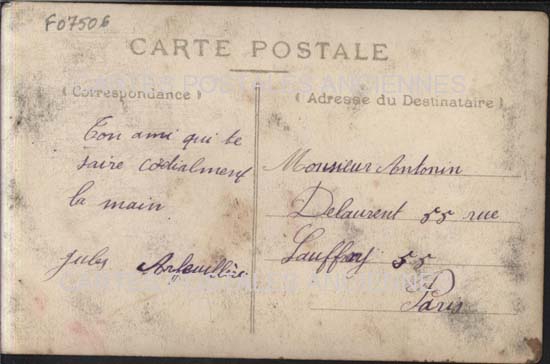 F07506
CARTE POSTALE
CARTES POSTALES ANCIENNES
(Correspondance)
(Adresse du Destinataire)
Ton ami qui te
saire codialment
la main
Jules
Monsieur Antonin
Delaurent 55 rue
Lauffroy 55
Paris
CARTES POSTALES ANCIENNES